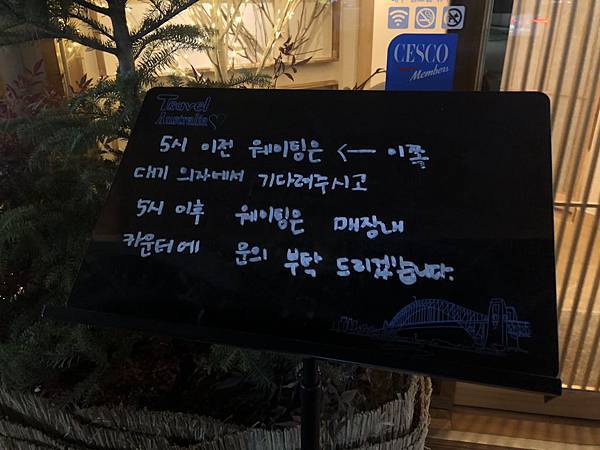 CESCO
Members
Travel
Australia
5시 이전 웨이팅은 <— 이쪽
대기 의자에서 기다려주시고
5시 이후 웨이팅은 매장내
카운터에 문의 부탁 드리겠습니다.